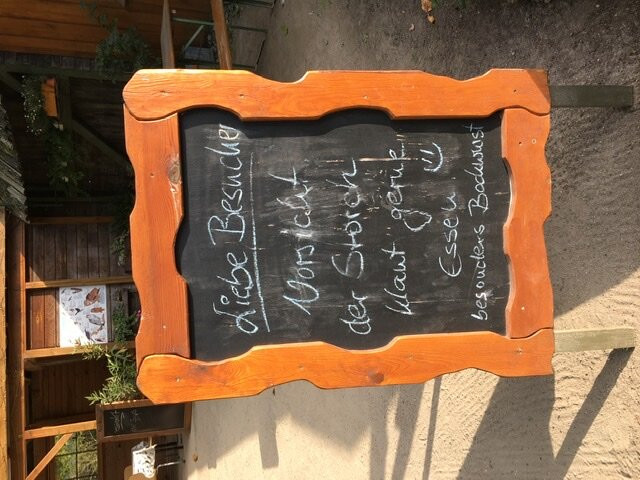 Liebe Besucher
Vorsicht
der Storch
klaut gerne
Essen
besonders Bockwurst